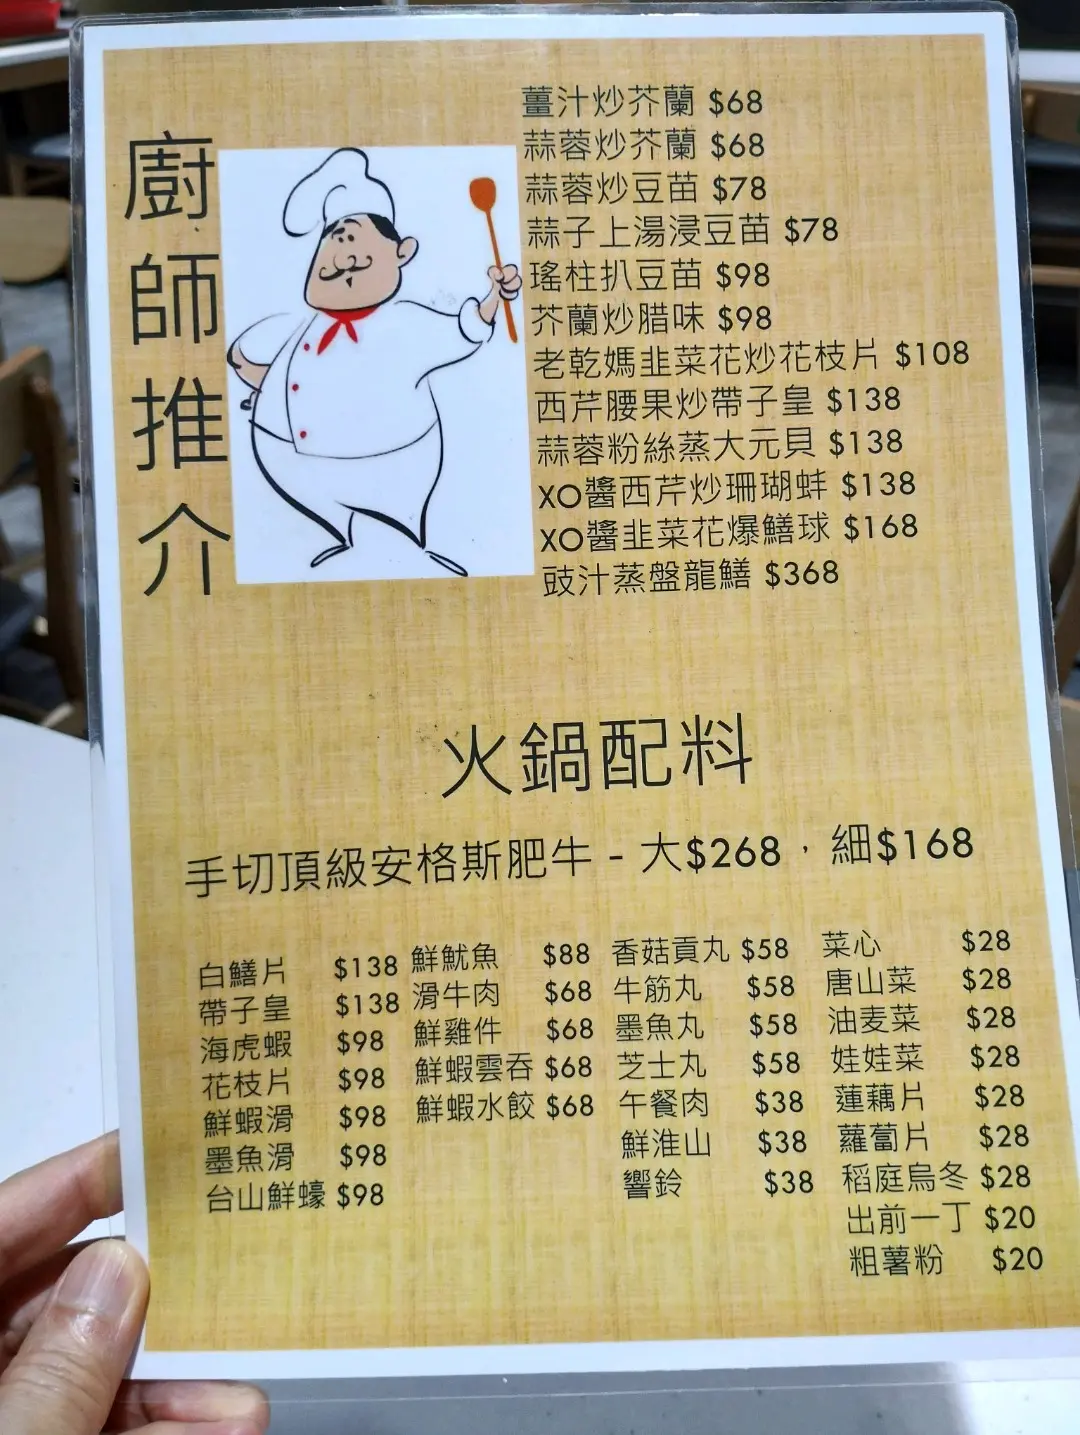 廚師推介
薑汁炒芥蘭 $68
蒜蓉炒芥蘭 $68
蒜蓉炒豆苗 $78
蒜子上湯浸豆苗 $78
瑤柱扒豆苗 $98
芥蘭炒腊味 $98
老乾媽韭菜花炒花枝片 $108
西芹腰果炒帶子皇 $138
蒜蓉粉絲蒸大元貝 $138
XO醬西芹炒珊瑚蚌 $138
XO醬韭菜花爆鱔球 $168
豉汁蒸盤龍鱔 $368
火鍋配料
手切頂級安格斯肥牛 - 大$268，細$168
白鱔片 $138
帶子皇 $138
海虎蝦 $98
花枝片 $98
鮮蝦滑 $98
墨魚滑 $98
台山鮮蠔 $98
鮮魷魚 $88
滑牛肉 $68
鮮雞件 $68
鮮蝦雲吞 $68
鮮蝦水餃 $68
香菇貢丸 $58
牛筋丸 $58
墨魚丸 $58
芝士丸 $58
午餐肉 $38
鮮淮山 $38
響鈴 $38
菜心 $28
唐山菜 $28
油麦菜 $28
娃娃菜 $28
蓮藕片 $28
蘿蔔片 $28
稻庭烏冬 $28
出前一丁 $20
粗薯粉 $20